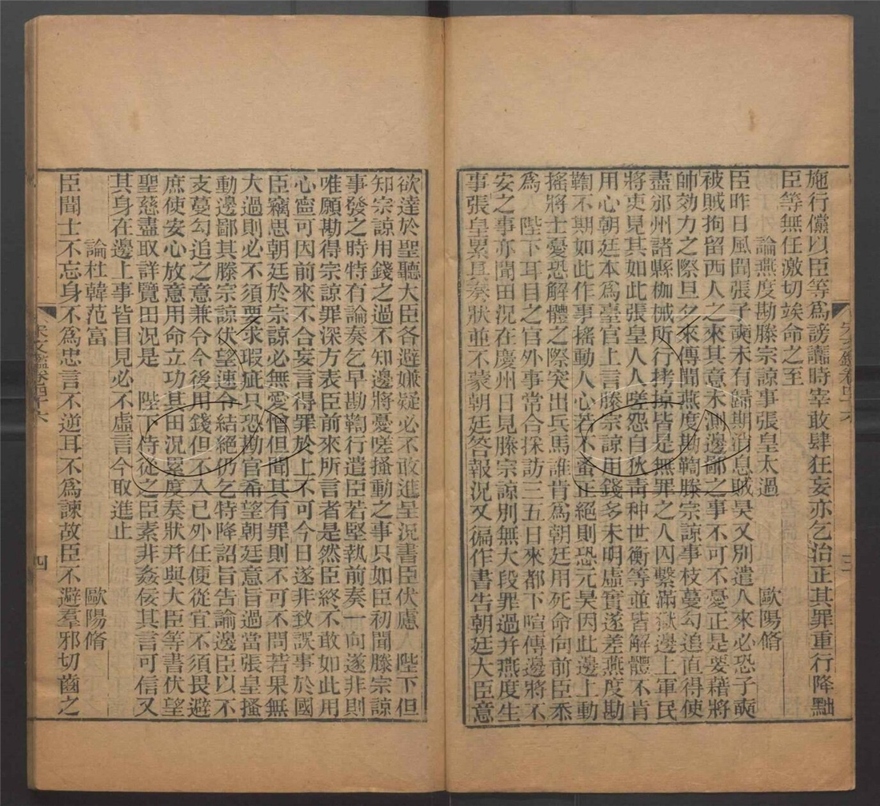 施行儻以臣等為謗讟時宰敢肆狂妄亦乞治正其罪重行降黜
臣等無任激切竢命之至
論燕度勘滕宗諒事張皇太過 歐陽脩
臣昨日風聞張子奭未有歸期消息賊昊又別遣人來必恐子奭
被賊拘留西人之來其意未測邊鄙之事不可不憂正是要藉將
帥効力之際旦夕來傳聞燕度勘鞫滕宗諒事枝蔓勾追直得使
盡邠州諸縣枷械所行拷掠皆是無罪之人囚繫滿獄邊上軍民
將吏見其如此張皇人人嗟怨自狄青种世衡等並皆解體不肯
用心朝廷本為臺官上言滕宗諒用錢多未明虛實遂差燕度勘
鞫不期如此作事搖動人心若不早止絕則恐元昊因此邊上動
搖將士憂恐解體之際突出兵馬誰肯為朝廷用死命向前臣忝
為 陛下耳目之官外事常合採訪三五日來都下喧傳邊將不
安之事亦聞田況在慶州日見滕宗諒別無大段罪過并燕度生
事張皇累具奏狀並不蒙朝廷答報況又徧作書告朝廷大臣意
欲達於聖聽大臣各避嫌疑必不敢進呈況書臣伏慮 陛下但
知宗諒用錢之過不知邊將憂嗟搔動之事只如臣初聞滕宗諒
事發之時特有論奏乞早勘鞫行遣臣若堅執前奏一向遂非則
唯願勘得宗諒罪深方表臣前來所言者是然臣終不敢如此用
心寧可因前來不合妄言得罪於上不可今日遂非致誤事於國
臣竊思朝廷於宗諒必無愛憎但聞其有罪則不可不問若果無
大過則必不須要求瑕疵只恐勘官希望朝廷意旨過當張皇搔
動邊鄙其滕宗諒伏望速令結絕仍乞特降詔旨告諭邊臣以不
支蔓勾追之意兼令今後用錢但不入已外任便從宜不須畏避
庶使安心放意用命立功其田況累度奏狀并與大臣等書伏望
聖慈盡取詳覽田況是 陛下侍從之臣素非姦佞其言可信又
其身在邊上事皆目見必不虛言今取進止
論杜韓范富 歐陽脩
臣聞士不忘身不為忠言不逆耳不為諫故臣不避羣邪切齒之
宋文鑑卷四十六
三
四